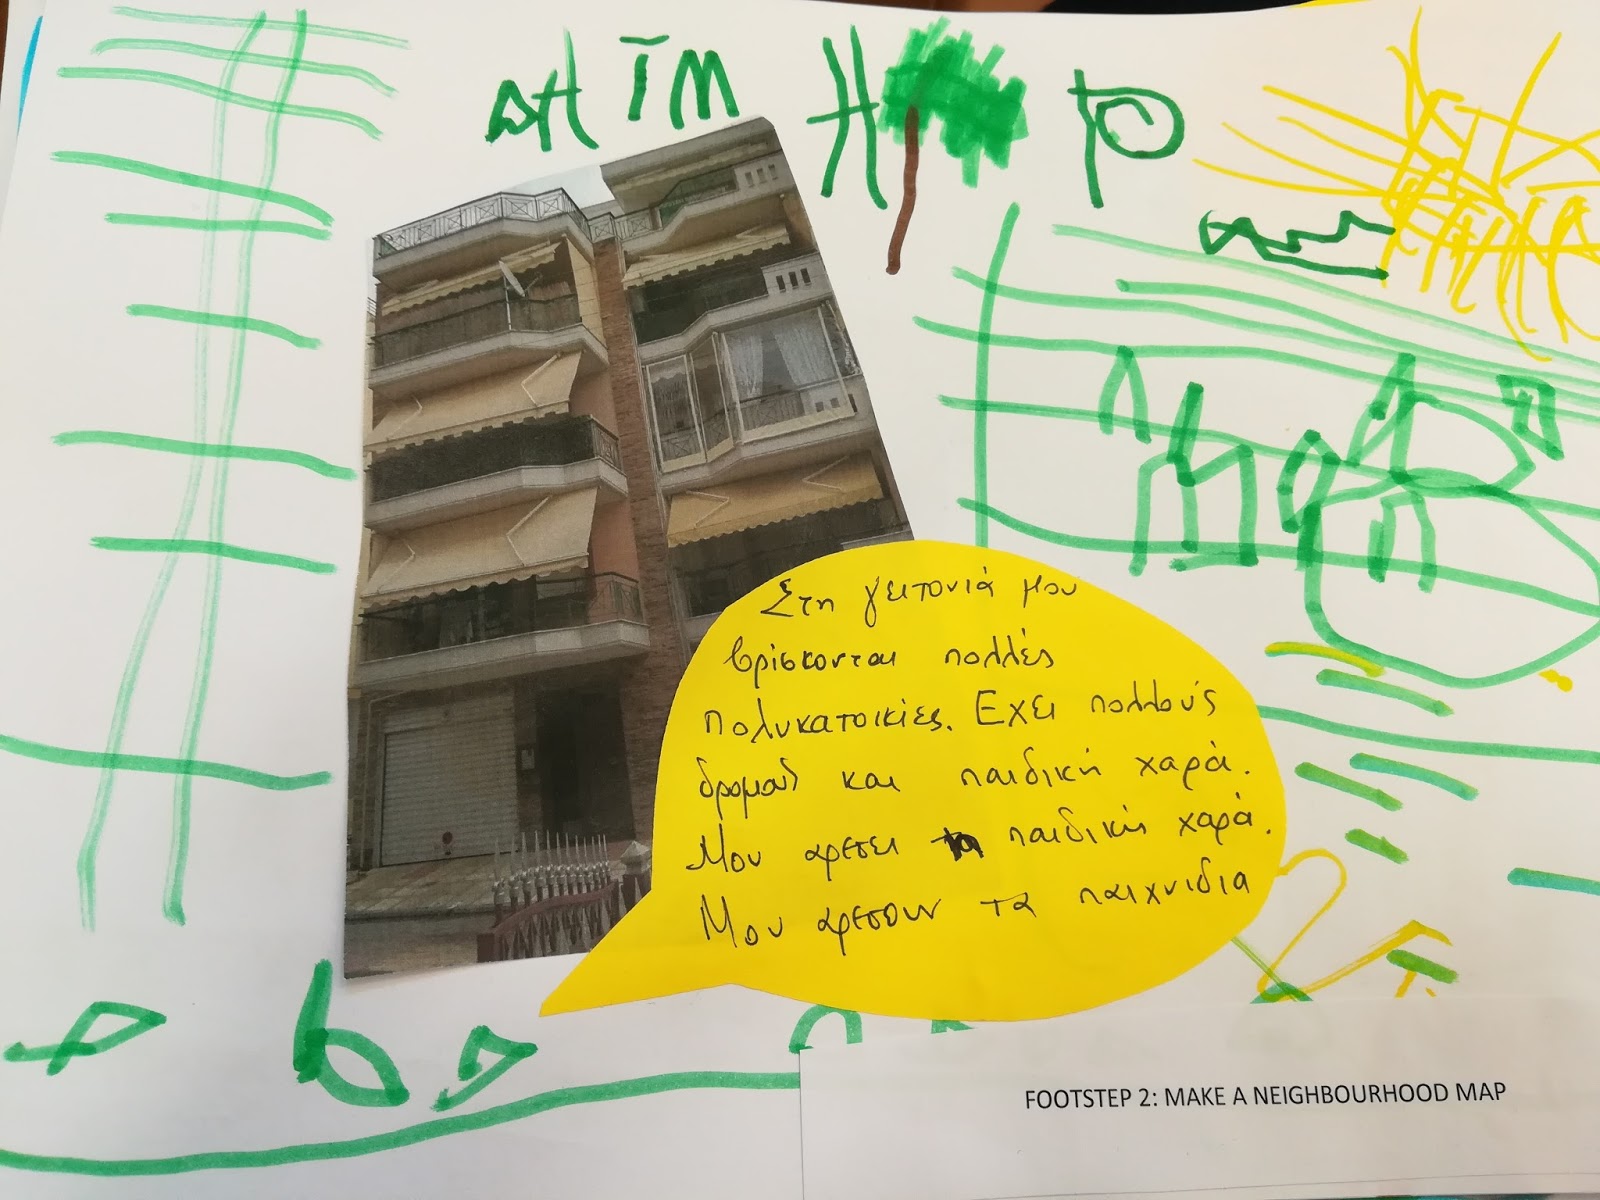 Στη γειτονιά μου
βρίσκονται πολλές
πολυκατοικίες. Εχει πολλούς
δρομους και παιδική χαρά.
Μου αρεσει η παιδική χαρά.
Μου αρεσουν τα παιχνιδια
FOOTSTEP 2: MAKE A NEIGHBOURHOOD MAP